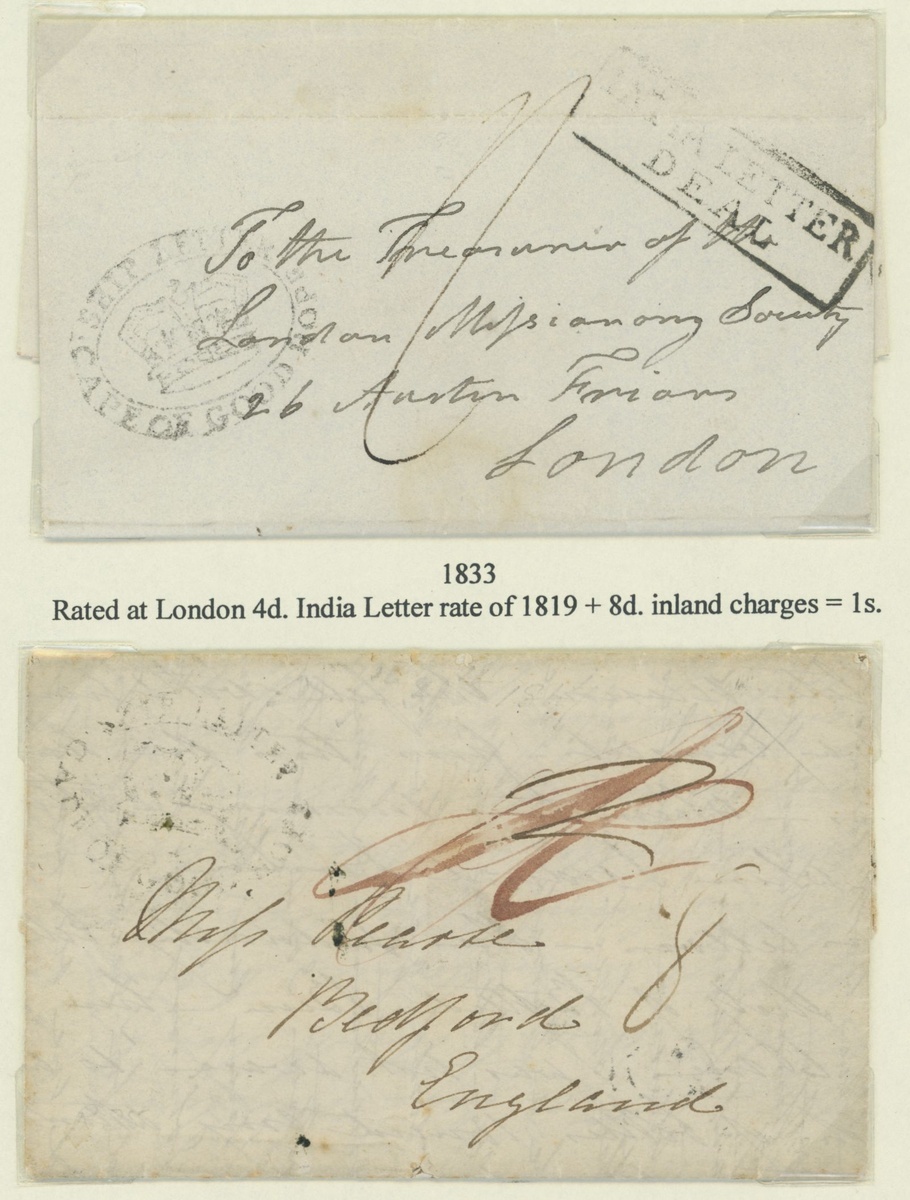 INDIA LETTER
DEAL
SHIP LETTER
CAPE OF GOOD HOPE
To the Treasurer of the
London Missionary Society
26 Austin Friars
London
1833
Rated at London 4d. India Letter rate of 1819 + 8d. inland charges = 1s.
SHIP LETTER
CAPE OF GOOD HOPE
8
Miss Pearse
Bedford
England